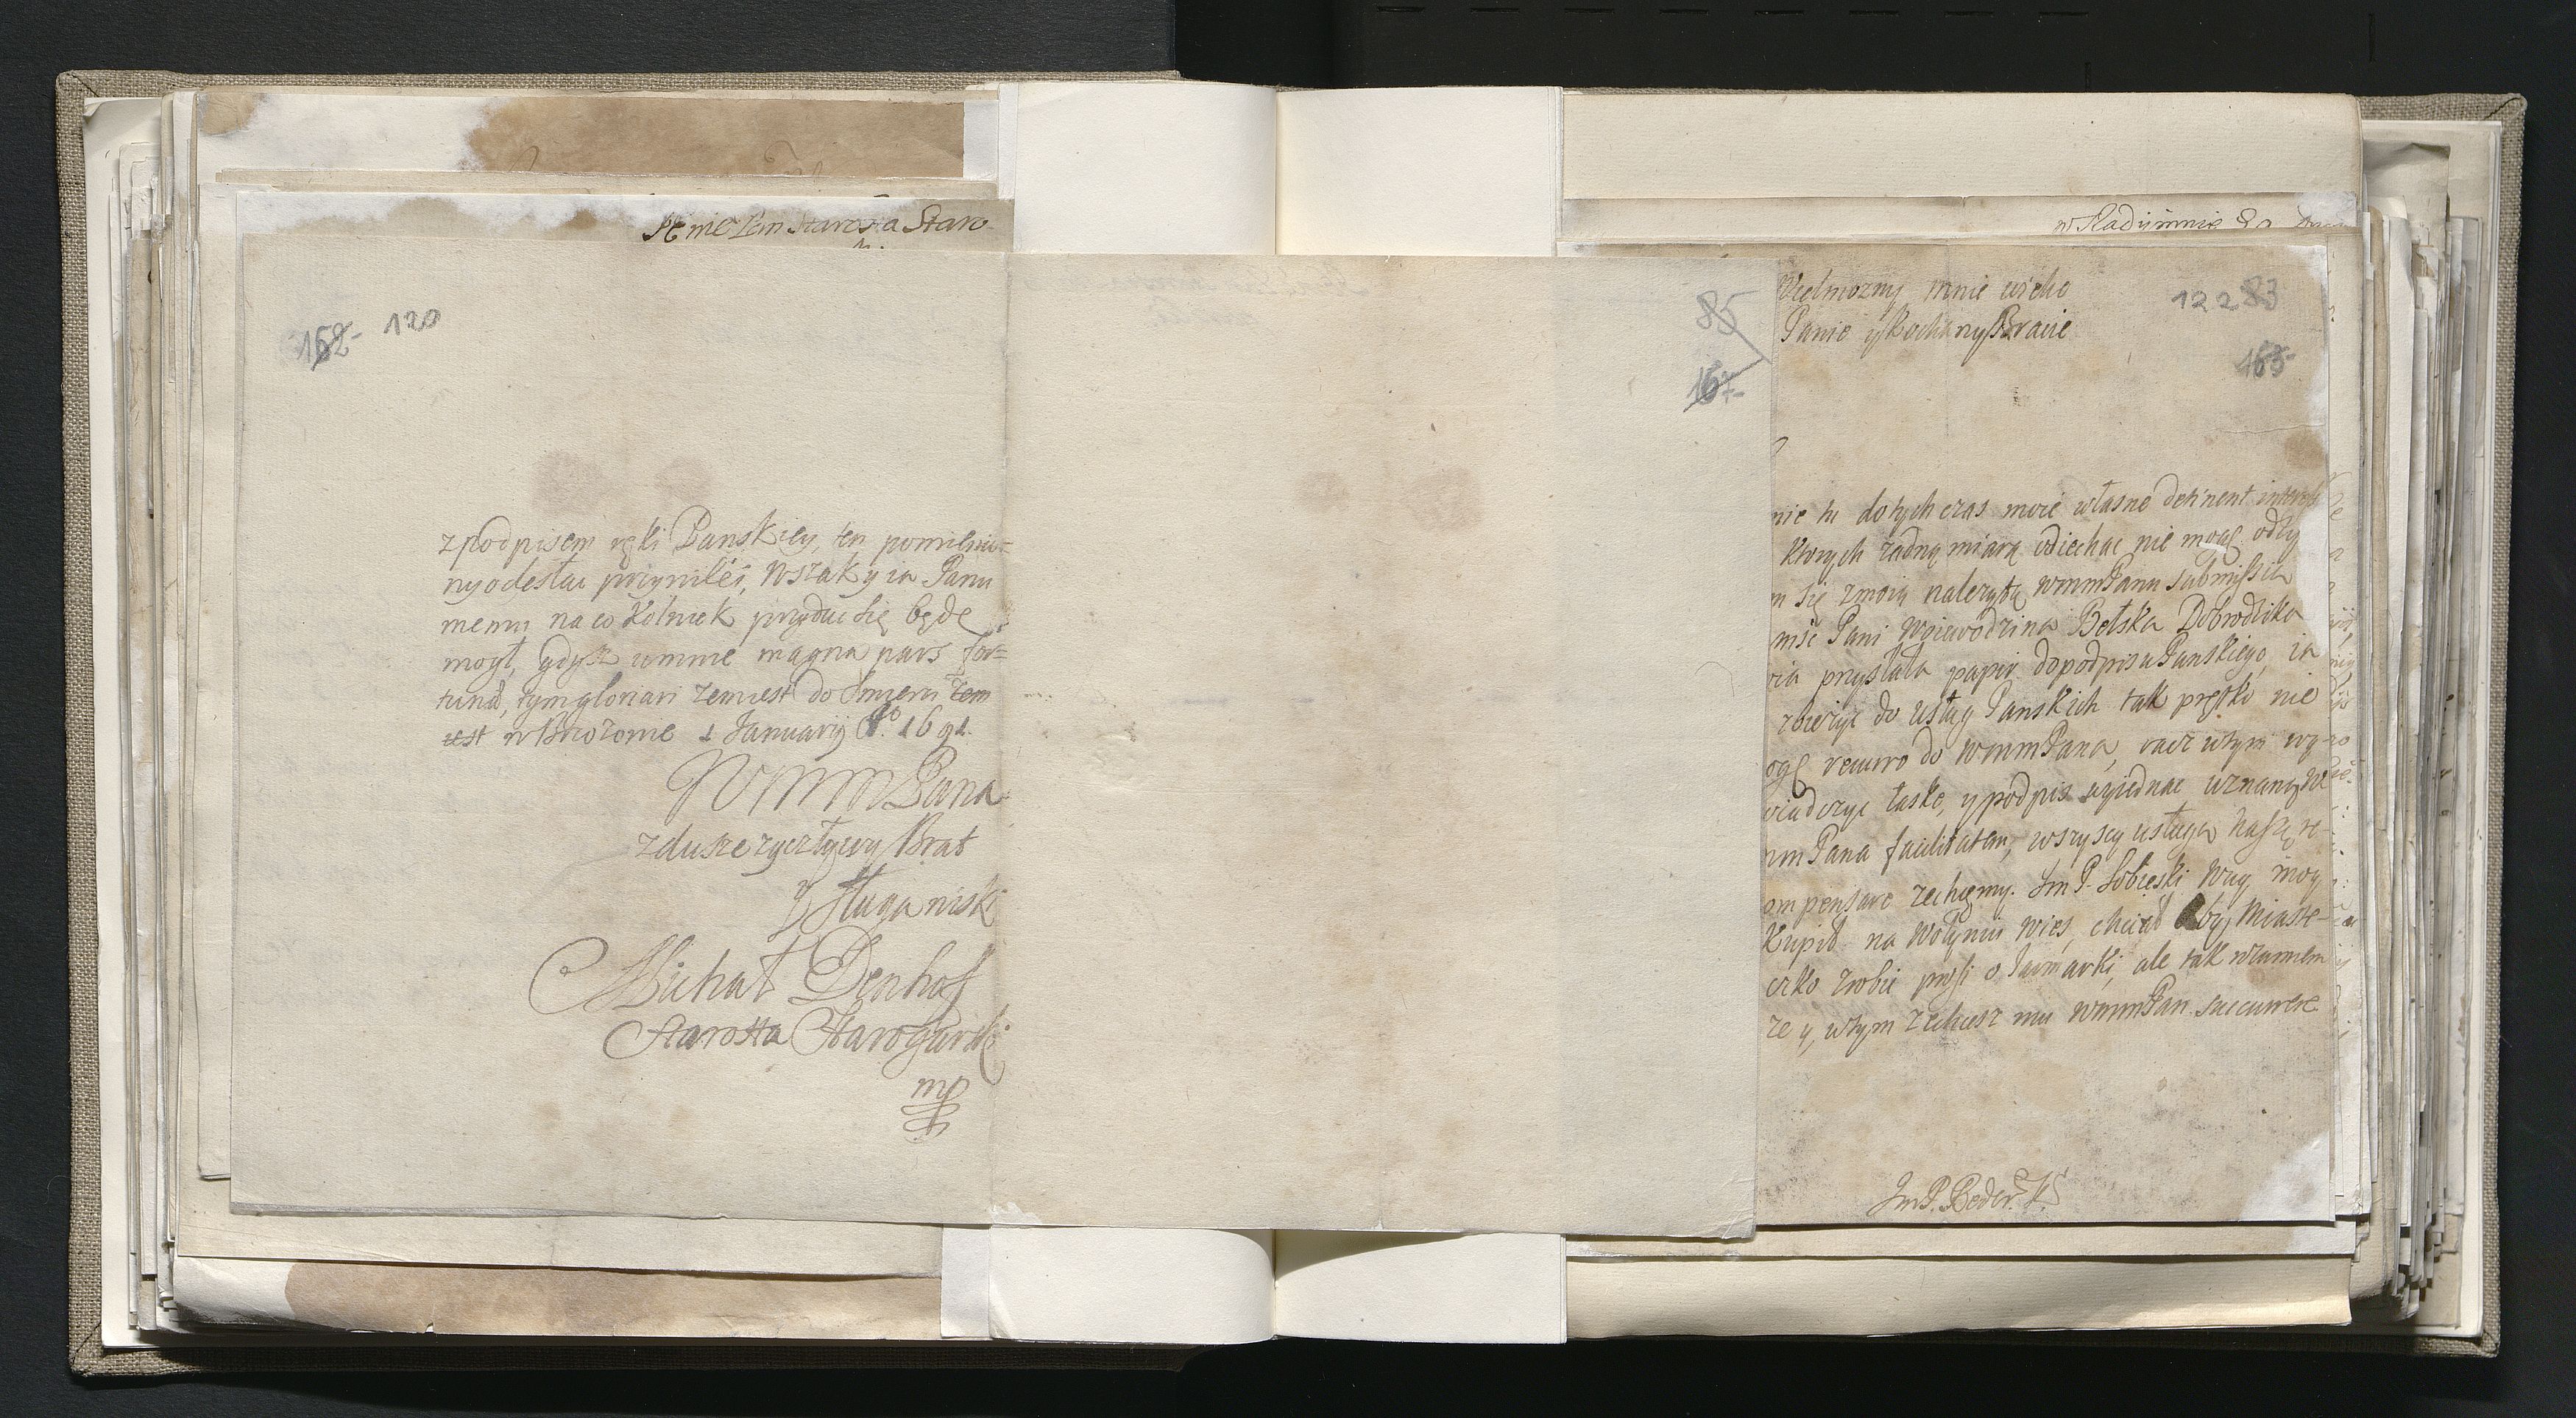 Starosta Staro-
162 120
z podpisem ręki Panskiey, ten pomienio=
ny odesłac przyniléś, wszak y ia Panu
memu na co kolwiek przydac się będę
mogł, gdysz umnie magna pars for=
tunæ, tym gloriari zemiest do smierci żem
iest w Brozowie 1 Januarij Ao. 1691.
WMM Pana
z dusze zyczliwy Brat
y Sługa niski
Michał Denhof
Starosta Starogardski
mp
85
167
w Radijmnie 20
Wielmozny mnie wielce
Panie y Kochany Bracie
122 83
163
nie tu dotychczas moie własne detinent interess
ktorych żadną miarą odiechac nie mogę. odzy
m się z moią nalezytą wmmPanu submissią
msc Pani Woiewodzina Bełska Dobrodźika
ia przysłała papir do podpisu Panskiego, ia
zbierzyc do usług Panskich tak prętko nie
ogę recurro do WmmPana, racz w tym wy-
viadczyc łaskę, y podpis wyiednac uznany W
mm Pana facilitatem, wszyscy usługą naszą re-
ompensare zechcemy. Im P. Sobieski Wuy moy
Kupił na Wołyniu wieś, chciał by Miaste-
czko zrobic prosi o Jarmarki, ale tak rozumiem
ze y w tym zechcesz mu WmmPan succurere
Im P. Reder.